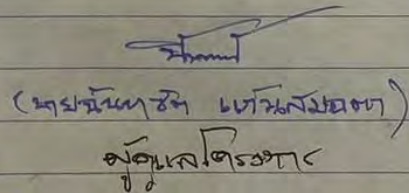 (นายฉันทชิต แก้วสมอตา)
ผู้ดูแลโครงการ